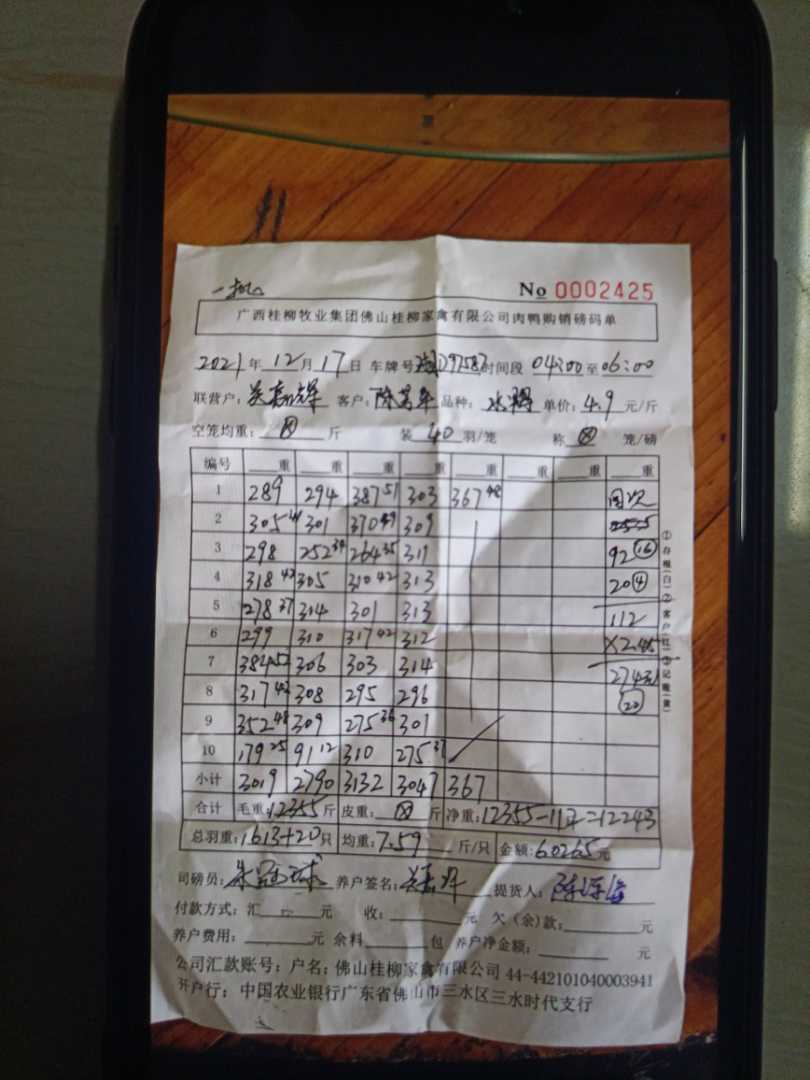 一批
No 0002425
广西桂柳牧业集团佛山桂柳家禽有限公司肉鸭购销磅码单
2021年12月17日 车牌号 时间段 04:00至06:00
联营户: 客户: 品种: 水鸭 单价: 4.9 元/斤
空笼均重: 斤 装 40 羽/笼 称 笼/磅
编号 重 重 重 重 重 重 重 重
1 289 294 387 51 303 367 48
2 305 301 370 49 309
3 298 252 34 264 35 311 92 (16)
4 318 43 305 310 42 313 20 (4)
5 278 37 314 301 313 112
6 299 310 317 42 312 ×2.45
7 384 52 306 303 314
8 317 43 308 295 296 (20)
9 352 48 309 275 36 301
10 179 25 91 12 310 275 37
小计 3019 2790 3132 3047 367
合计 毛重: 12355 斤 皮重: 斤 净重: 12355-112=12243
总羽重: 1613+20 只 均重: 7.59 斤/只 金额: 60265 元
司磅员: 养户签名: 提货人:
付款方式: 汇 元 收: 元 欠(余)款: 元
养户费用: 元 余料 包 养户净金额: 元
公司汇款账号: 户名: 佛山桂柳家禽有限公司 44-442101040003941
开户行: 中国农业银行广东省佛山市三水区三水时代支行
①存根(白)②客户(红)③记账(黄)